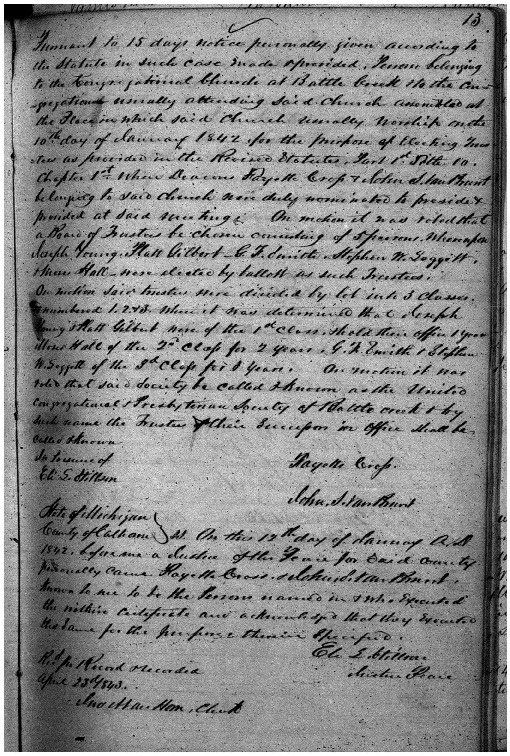 13
Pursuant to 15 days notice personally given according to
the Statute in such case made & provided, Persons belonging
to the Congregational Church at Battle Creek & to the Con-
gregation usually attending said Church assembled at
the Place in which said Church usually worship on the
10th day of January 1842 for the purpose of Electing Trus
tees as provided in the Revised Statutes, Part 1st Title 10.
Chapter 1st. When Deacons Fayette Cross & John S. Van Brunt
belonging to said church were duly nominated to preside &
presided at said meeting. On motion it was voted that
a Board of Trustees be chosen consisting of 5 persons, Whereupon
Joseph Young, Platt Gilbert G. F. Smith, Stephen W. Leggitt
& Moses Hall were elected by ballott as such Trustees.
On motion said trustees were divided by lot into 3 Classes.
& numbered 1.2.&3. When it was determined that Joseph
Young & Platt Gilbert were of the 1st Class, & hold their office 1 year
Moses Hall of the 2d Class for 2 years, G. F. Smith & Stephen
W. Leggitt of the 3d Class for 3 years. On motion it was
voted that said Society be called & known as the United
Congregational & Presbyterian Society of Battle creek & by
such name the Trustees & their Successors in office shall be
Called & known
In Presence of
Eli L. Stillson
Fayette Cross.
John S. Van Brunt
State of Michigan
County of Calhoun } ss. On this 12th day of January A.D
1842, before me a Justice of the Peace for said county
personally came Fayette Cross & John S. Van Brunt,
known to me to be the Persons named in & who Executed
the within Certificate and acknowledged that they Executed
the same for the purposes therein specified.
Eli L. Stillson
Justice Peace
Recd. for Record & recorded
April 23d 1843.
Clerk